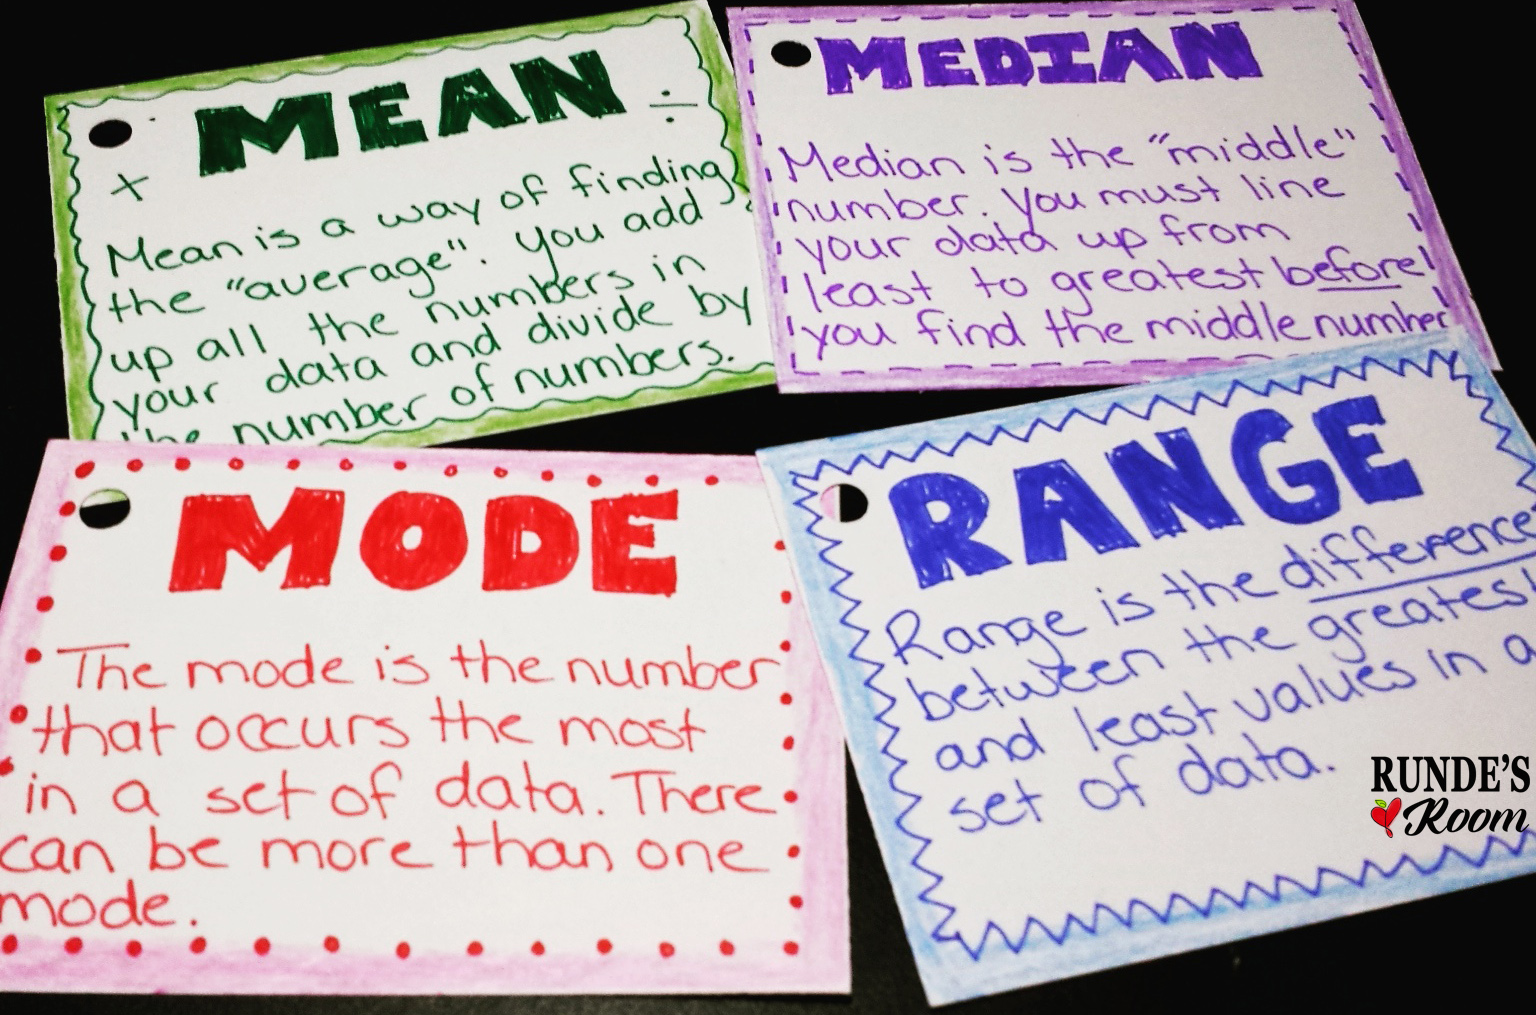 MEAN
+ ÷
Mean is a way of finding
the "average". You add
up all the numbers in
your data and divide by
the number of numbers.
MEDIAN
Median is the "middle"
number. You must line
your data up from
least to greatest before
you find the middle number
MODE
The mode is the number
that occurs the most
in a set of data. There
can be more than one
mode.
RANGE
Range is the difference
between the greatest
and least values in a
set of data.
RUNDE'S
Room